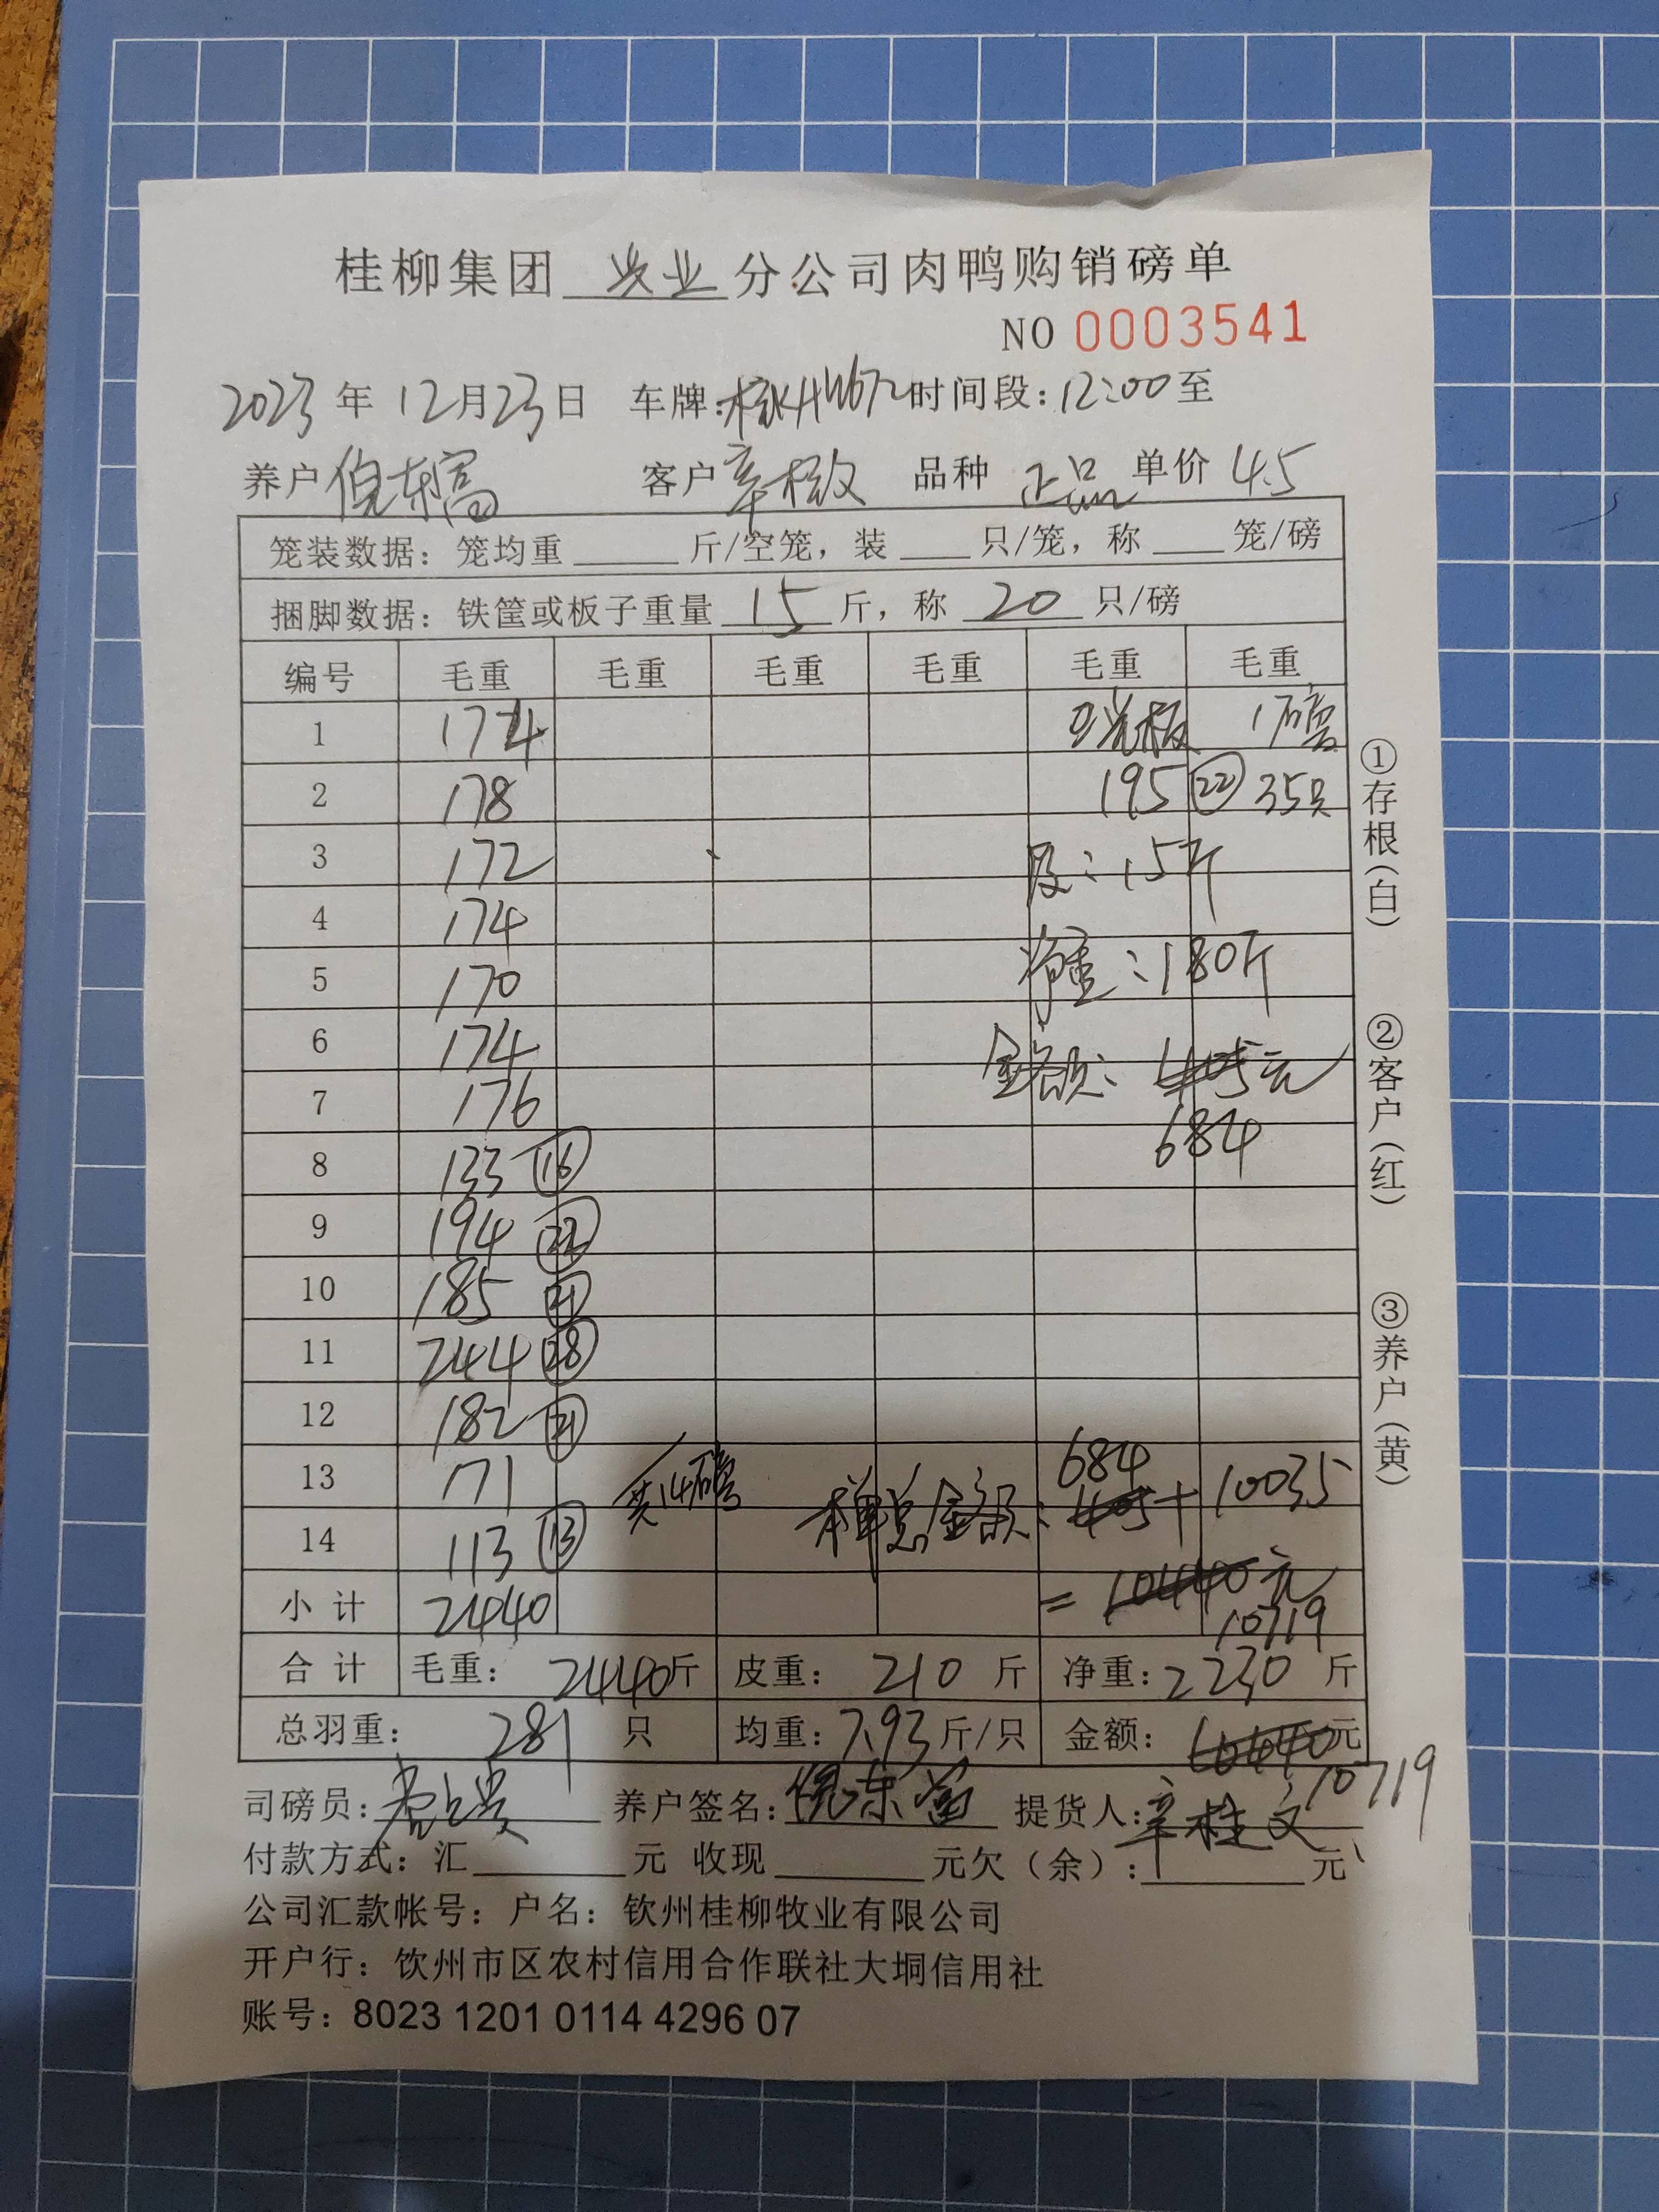 桂柳集团 农业 分公司肉鸭购销磅单
NO 0003541
2023 年 12月23日 车牌: 时间段: 12:00 至
养户 倪东富 客户 辛桂文 品种 正品 单价 4.5
笼装数据: 笼均重 ____ 斤/空笼, 装 ____ 只/笼, 称 ____ 笼/磅
捆脚数据: 铁筐或板子重量 15 斤, 称 20 只/磅
编号 毛重 毛重 毛重 毛重 毛重 毛重
1 174 光板 1磅
2 178 195 ㉒ 35只
3 172 皮: 15斤
4 174
5 170 净重: 180斤
6 174 金额: 405元
7 176 684
8 133 ⑯
9 194 ㉒
10 185 ㉑
11 244 ㉘
12 182 ㉑
13 171 共14磅 本单总金额: 405 684 + 10035
14 113 ⑬
小计 2440 = 10440元 10719
合计 毛重: 2440斤 皮重: 210 斤 净重: 2230 斤
总羽重: 281 只 均重: 7.93 斤/只 金额: 10440元 10719
司磅员: 养户签名: 倪东富 提货人: 辛桂文
付款方式: 汇____元 收现____元欠(余): ____元
公司汇款帐号: 户名: 钦州桂柳牧业有限公司
开户行: 钦州市区农村信用合作联社大垌信用社
账号: 8023 1201 0114 4296 07
①存根(白)
②客户(红)
③养户(黄)